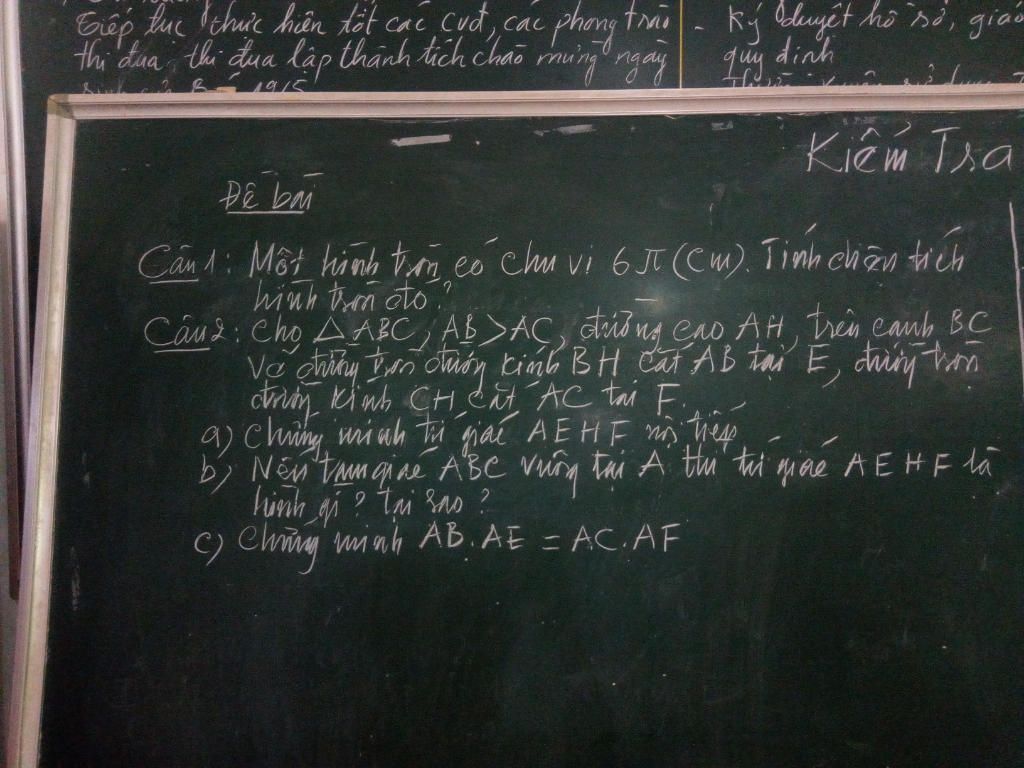 Tiếp tục thực hiện tốt các cuđ, các phong trào
thi đua. thi đua lập thành tích chào mừng ngày
- Ký duyệt hồ sơ, giáo
quy định
Kiểm Tra
Đề bài
Câu 1: Một hình tròn có chu vi 6π (cm). Tính diện tích
hình tròn đó?
Câu 2: Cho △ ABC, AB > AC, đường cao AH, trên cạnh BC
Vẽ đường tròn đường kính BH cắt AB tại E, đường tròn
đường kính CH cắt AC tại F.
a) Chứng minh tứ giác AEHF nội tiếp
b) Nếu tam giác ABC vuông tại A thì tứ giác AEHF là
hình gì? tại sao?
c) Chứng minh AB.AE = AC.AF